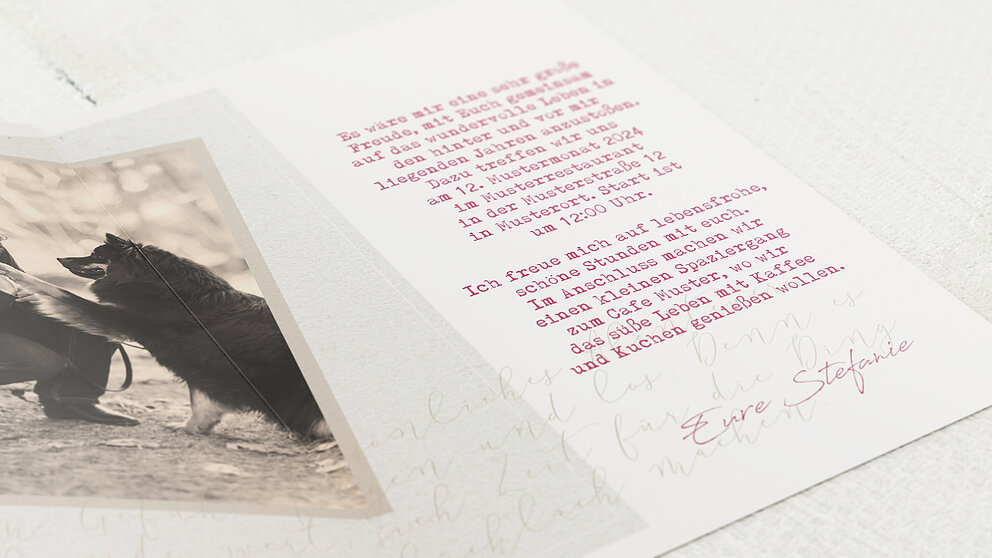 Es wäre mir eine sehr große
Freude, mit Euch gemeinsam
auf das wundervolle Leben in
den hinter und vor mir
liegenden Jahren anzustoßen.
Dazu treffen wir uns
am 12. Mustermonat 2024
im Musterrestaurant
in der Musterstraße 12
in Musterort. Start ist
um 12:00 Uhr.
Ich freue mich auf lebensfrohe,
schöne Stunden mit euch.
Im Anschluss machen wir
einen kleinen Spaziergang
zum Cafe Muster, wo wir
das süße Leben mit Kaffee
und Kuchen genießen wollen.
Eure Stefanie
es
und los. Denn
Zeit für die Ding
machen.